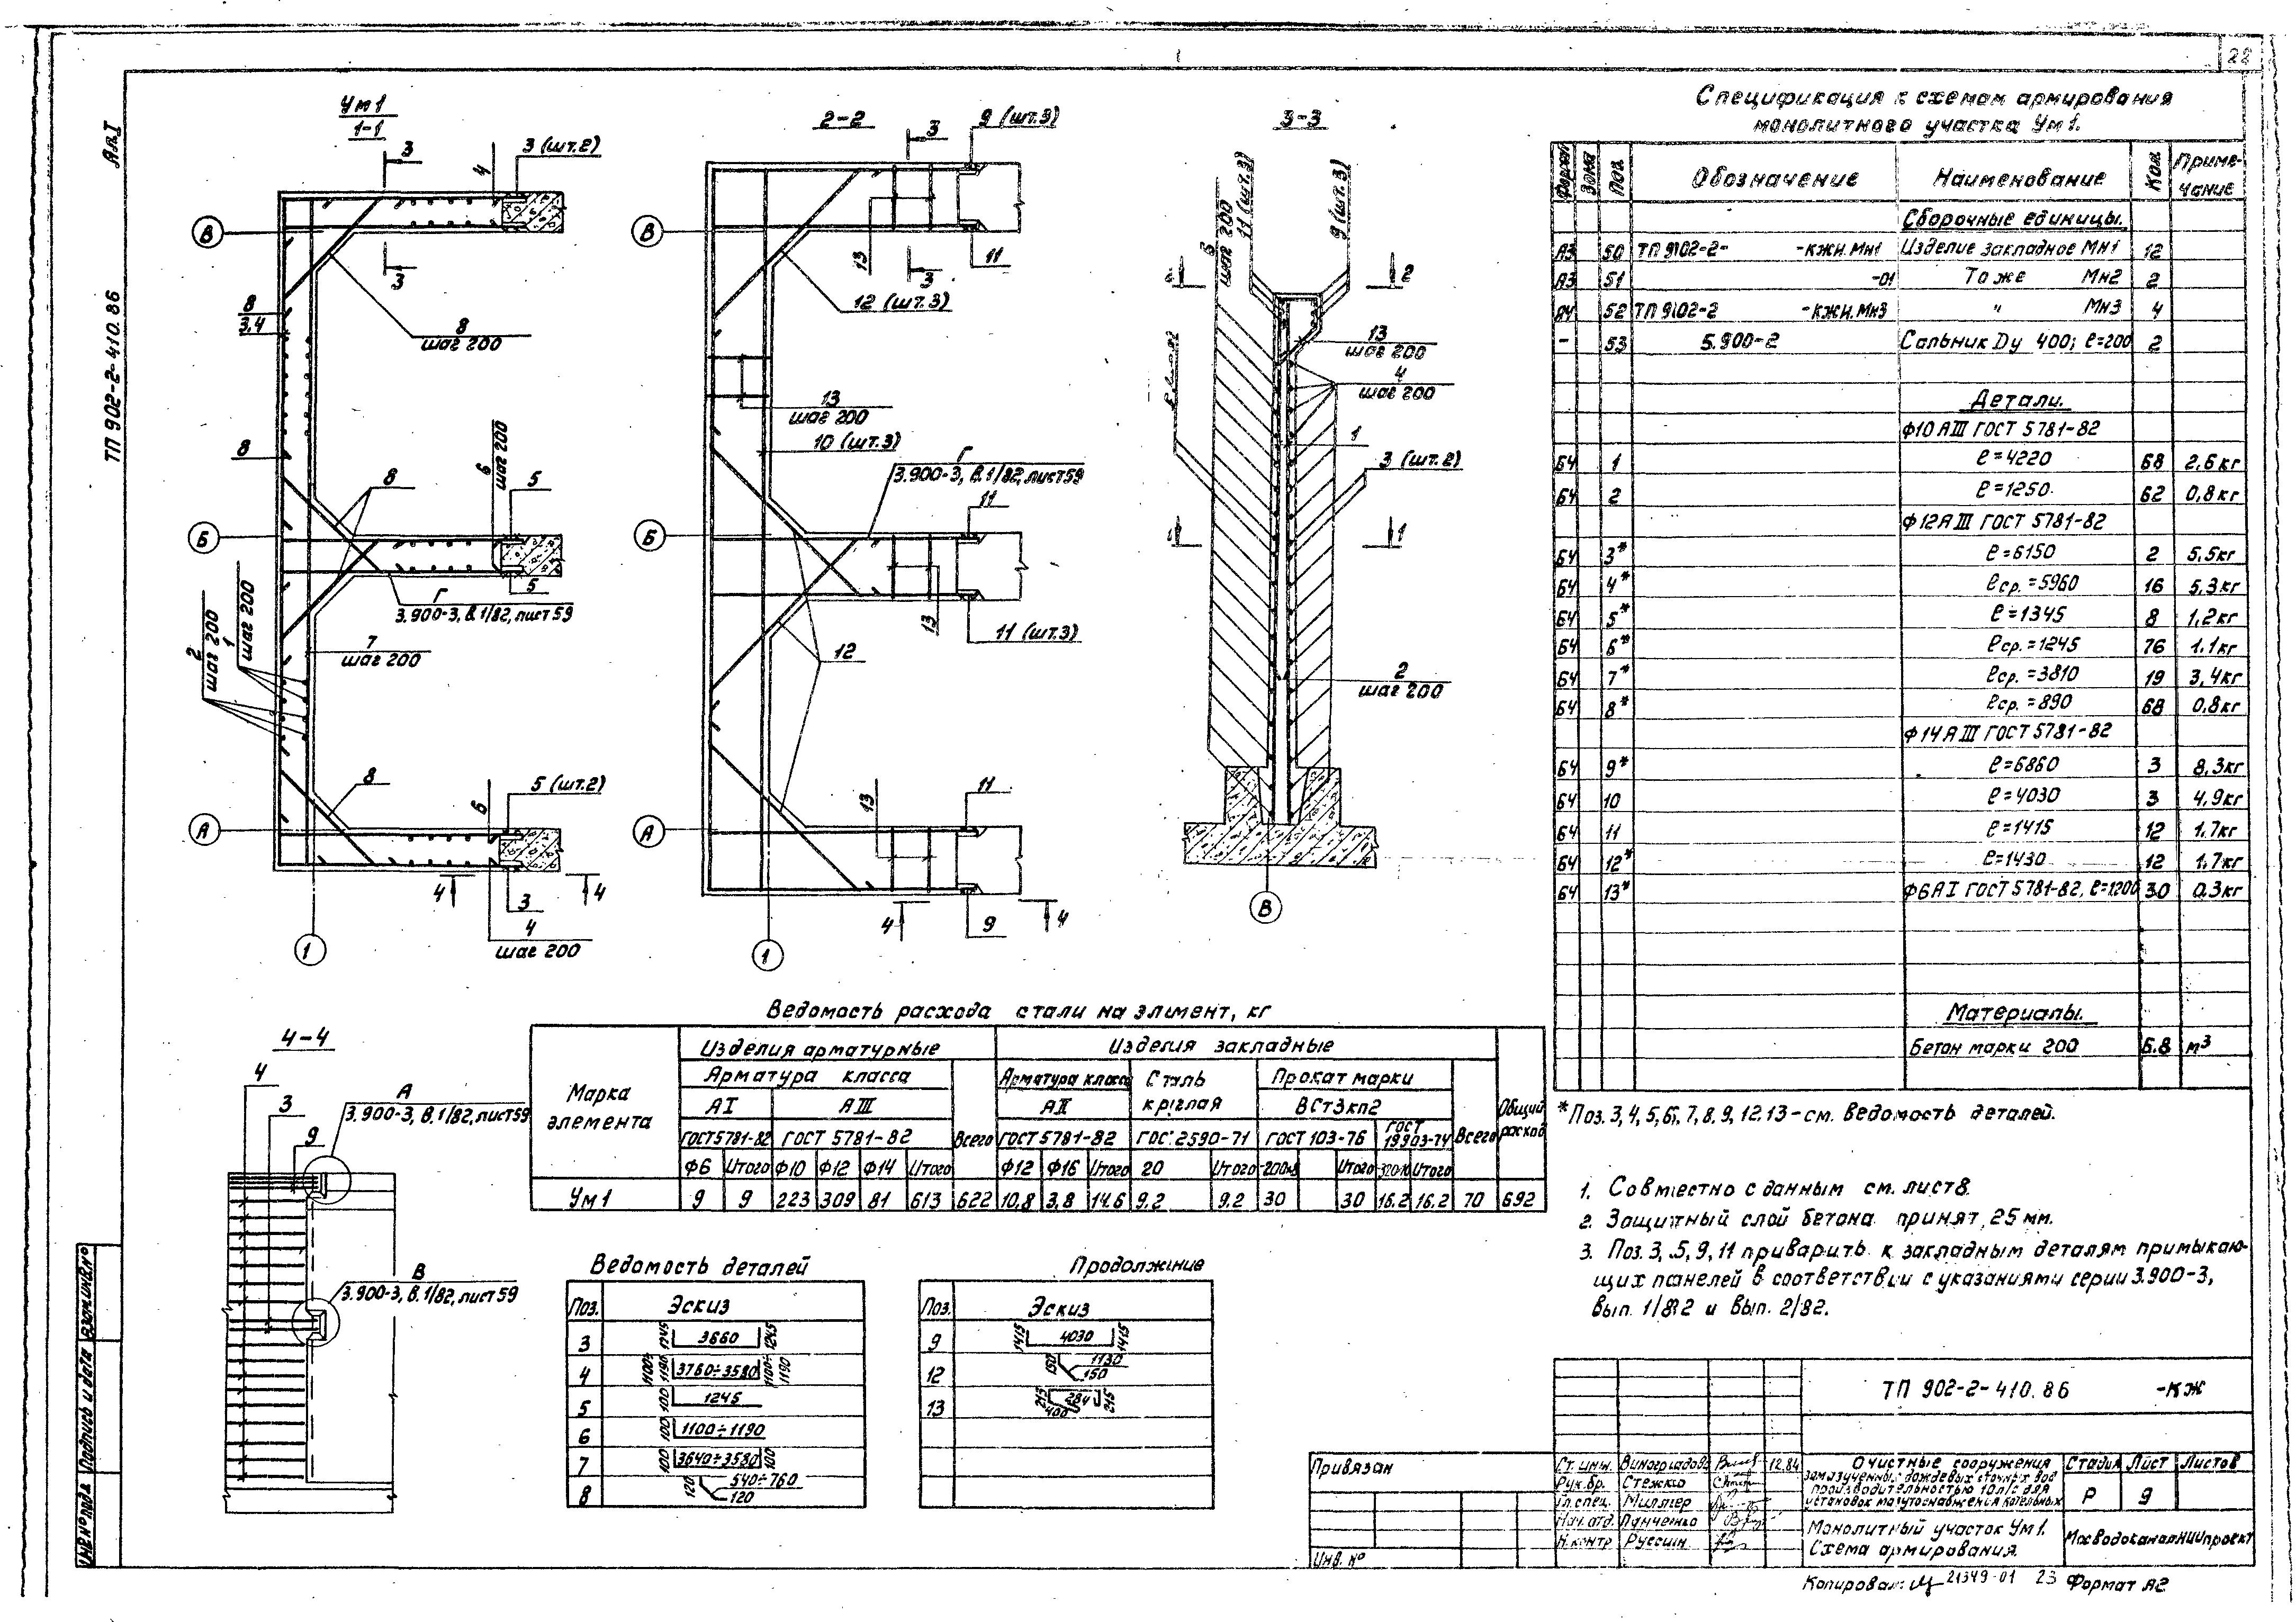 22
Ал.I
ТП 902-2-410.86
Ум1
1-1
3
4
3 (шт.2)
В
3
8
3,4
8
шаг 200
8
8
6
шаг 200
5
Б
5
Г
3.900-3, В.1/82, лист 59
2
шаг 200
1
шаг 200
7
шаг 200
8
6
5 (шт.2)
А
4
4
3
4
шаг 200
1
2-2
3
9 (шт.3)
В
13
3
11
12 (шт.3)
13
шаг 200
10 (шт.3)
Г
3.900-3, В.1/82, лист 59
11
Б
13
11 (шт.3)
12
13
11
А
4
9
4
1
3-3
шаг 200
11 (шт.3)
9 (шт.3)
2
13
шаг 200
4
шаг 200
1
3 (шт.2)
1
2
шаг 200
В
4-4
4
А
3.900-3, В.1/82, лист 59
3
9
В
3.900-3, В.1/82, лист 59
Спецификация к схемам армирования
монолитного участка Ум1.
Формат Зона Поз. Обозначение Наименование Кол. Приме-
чание
Сборочные единицы.
А3 50 ТП 9102-2- -КЖИ.Мн1 Изделие закладное Мн1 12
А3 51 -01 То же Мн2 2
А4 52 ТП 9102-2 -КЖИ.Мн3 " Мн3 4
- 53 5.900-2 Сальник Dу 400; ℓ=200 2
Детали.
Ф10 АIII ГОСТ 5781-82
БЧ 1 ℓ=4220 68 2,6кг
БЧ 2 ℓ=1250 62 0,8кг
Ф12АIII ГОСТ 5781-82
БЧ 3* ℓ=6150 2 5,5кг
БЧ 4* ℓср.=5960 16 5,3кг
БЧ 5* ℓ=1345 8 1,2кг
БЧ 6* ℓср.=1245 76 1.1кг
БЧ 7* ℓср.=3810 19 3,4кг
БЧ 8* ℓср.=890 68 0,8кг
Ф14АIII ГОСТ 5781-82
БЧ 9* ℓ=6860 3 8.3кг
БЧ 10 ℓ=4030 3 4.9кг
БЧ 11 ℓ=1415 12 1.7кг
БЧ 12* ℓ=1430 12 1.7кг
БЧ 13* Ф6АI ГОСТ 5781-82, ℓ=1200 30 0.3кг
Материалы.
Бетон марки 200 6.8 м³
*Поз. 3, 4, 5, 6, 7, 8, 9, 12.13-см. Ведомость деталей.
1. Совместно с данным см. лист 8.
2. Защитный слой бетона принят 25 мм.
3. Поз. 3, 5, 9, 11 приварить к закладным деталям примыкаю-
щих панелей в соответствии с указаниями серии 3.900-3,
Вып. 1/82 и Вып. 2/82.
Ведомость расхода стали на элемент, кг
Марка
элемента
Изделия арматурные
Изделия закладные
Общий
расход
Арматура класса
Всего
Арматура класса
Сталь
круглая
Прокат марки
Всего
АI АIII АII ВСт3кп2
ГОСТ5781-82 ГОСТ 5781-82 ГОСТ5781-82 ГОСТ 2590-71 ГОСТ 103-76 ГОСТ
19903-74
Ф6 Итого Ф10 Ф12 Ф14 Итого Ф12 Ф16 Итого 20 Итого Итого Итого
Ум1 9 9 223 309 81 613 622 10,8 3,8 14.6 9.2 9.2 30 30 16.2 16.2 70 692
Ведомость деталей
Поз. Эскиз
3 1245 3660 1245
4 1100÷1190 3760÷3580 1100÷1190
5 100 1245
6 100 1100÷1190
7 100 3640÷3580 100
8 120 540÷760 120
Продолжение
Поз. Эскиз
9 1415 4030 1415
12 150 1130 150
13 215 284 400 215
ТП 902-2-410.86 -КЖ
Привязан
Инв. №
Ст. инж. Виноградова 12.84
Рук.бр. Стежко
Гл.спец. Миллер
Нач.отд. Панченко
Н.контр Руссин
Очистные сооружения
замазученных дождевых сточных вод
производительностью 10л/с для
установок мазутоснабжения котельных
Стадия Лист Листов
Р 9
Монолитный участок Ум1.
Схема армирования.
МосводоканалНИИпроект
Копировал: 21349-01 23 Формат А2
Инв № подл. Подпись и дата Взам.инв.№